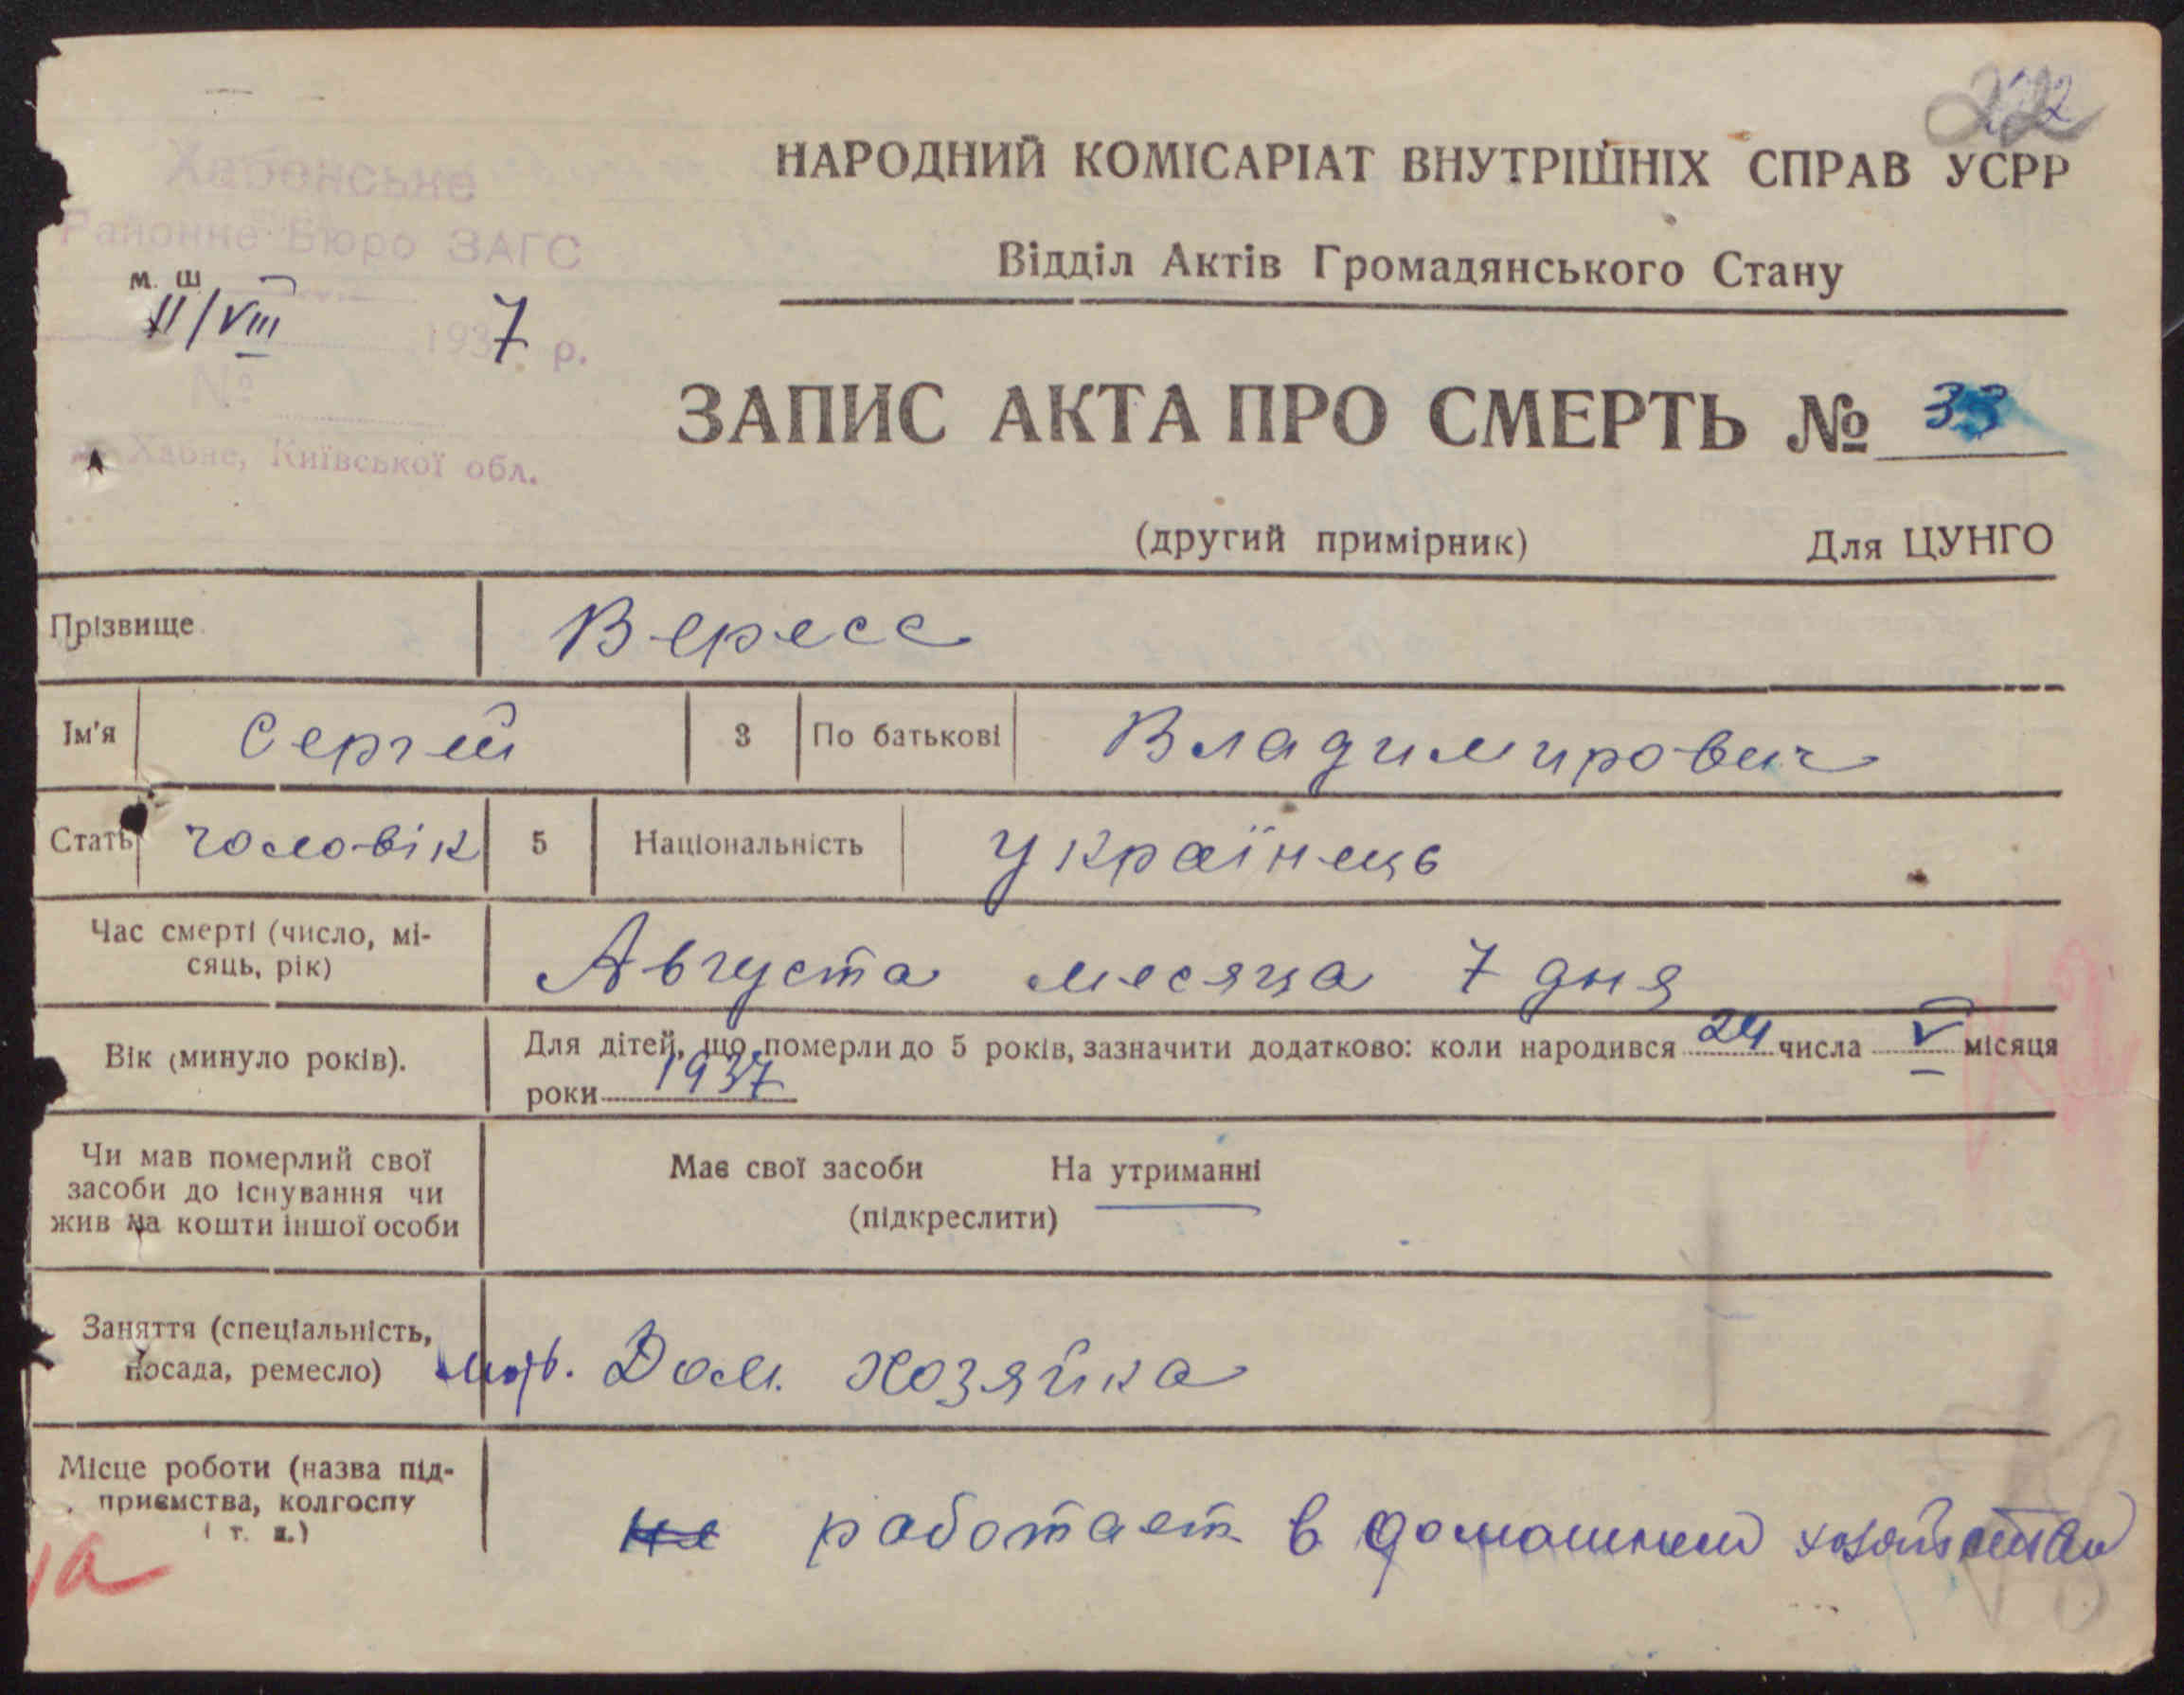 222
НАРОДНИЙ КОМІСАРІАТ ВНУТРІШНІХ СПРАВ УСРР
Відділ Актів Громадянського Стану
Хабенське
Районне Бюро ЗАГС
м. ш
11/VIII 1937 р.
№
Хабне, Київської обл.
ЗАПИС АКТА ПРО СМЕРТЬ № 33
(другий примірник) Для ЦУНГО
Прізвище Вересс
Ім'я Сергей 3 По батькові Владимирович
Стать чоловік 5 Національність українець
Час смерті (число, мі-
сяць, рік) Августа месяца 7 дня
Вік (минуло років). Для дітей, що померли до 5 років, зазначити додатково: коли народився 24 числа V місяця
роки 1937
Чи мав померлий свої
засоби до існування чи
жив на кошти іншої особи
Має свої засоби На утриманні
(підкреслити)
Заняття (спеціальність,
посада, ремесло) Дом. хозяйка
Місце роботи (назва під-
приємства, колгоспу
і т. і.)
не работает в домашнем